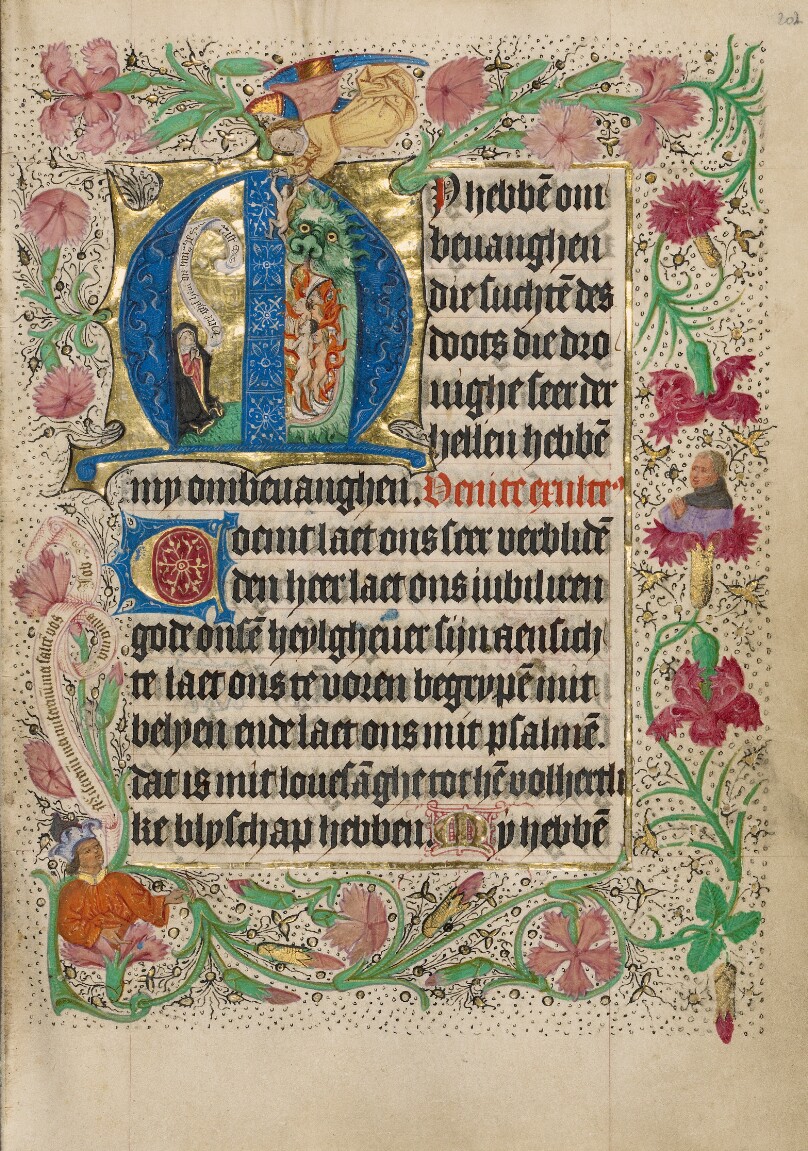 202
Y hebbē om
beuanghen
die suchtē des
doots die dro
uighe seer der
hellen hebbē
my ombeuanghen. Venite exulte
Coemt laet ons seer verblidē
den heer laet ons iubiliren
gode onsē heylgheuer sijn aensich
te laet ons te voren begrypē mit
belyen ende laet ons mit psalmē.
dat is mit louesāghe tot hē volhertli
ke blyschap hebben. My hebbē